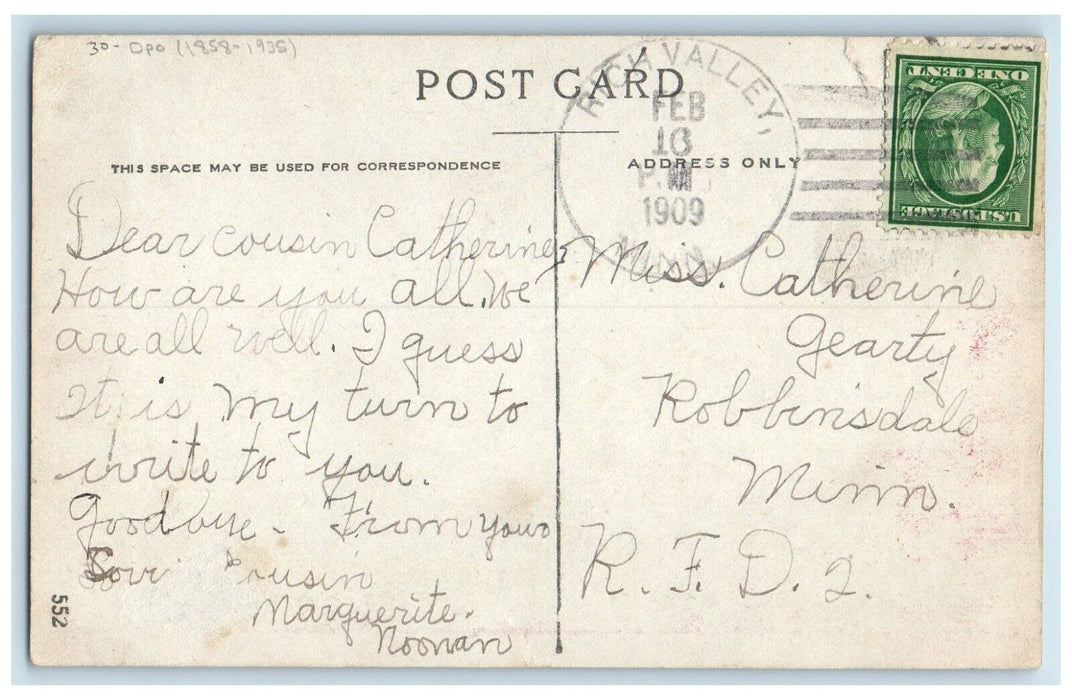 30- DPO (1858-1935)
POST CARD
RICH VALLEY,
FEB
16
P.M.
1909
MINN.
ONE CENT
U.S. POSTAGE
THIS SPACE MAY BE USED FOR CORRESPONDENCE
ADDRESS ONLY
Dear cousin Catherine,
How are you all. We
are all well. I guess
It is my turn to
write to you.
Goodbye - From your
cousin
Marguerite.
Noonan
552
Miss. Catherine
Gearty
Robbinsdale
Minn.
R. F. D. 2.